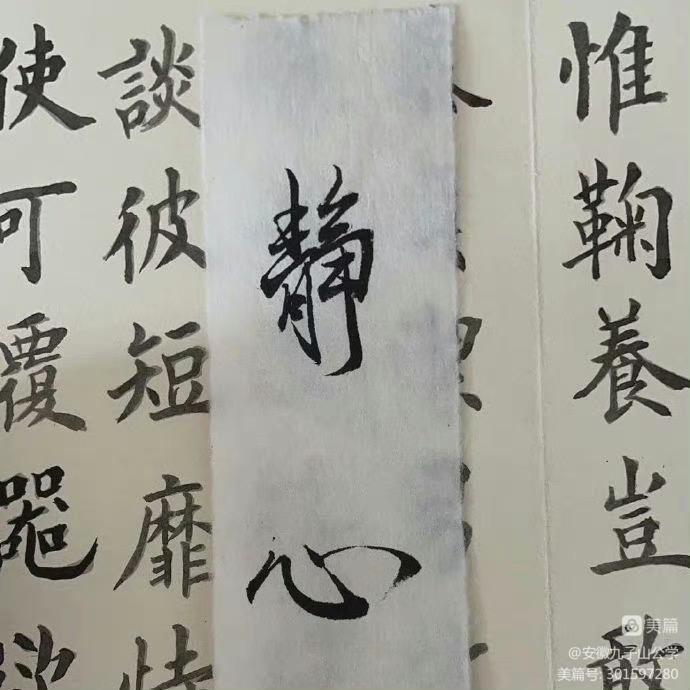 惟鞠養豈敢
靜心
談彼短靡恃
使可覆器欲
美篇
@安徽九子山公学
美篇号:301597280